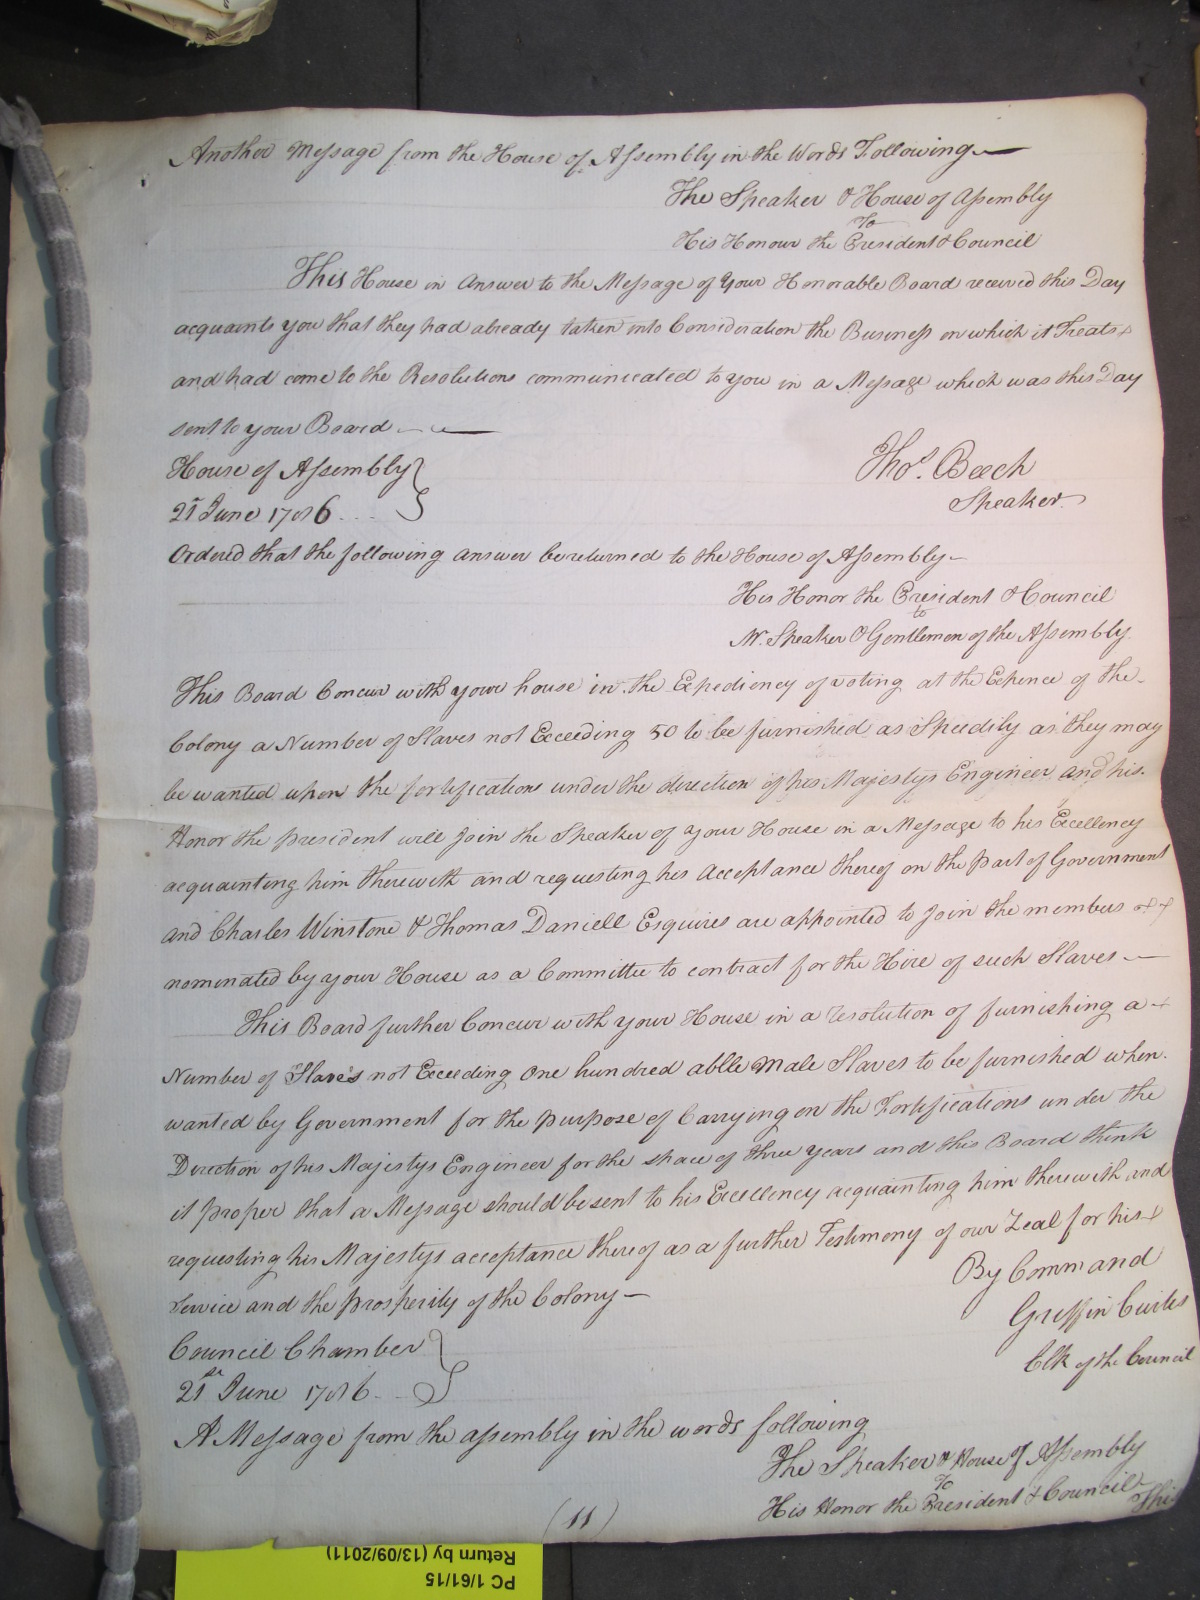 Another Message from the House of Assembly in the Words Following
The Speaker & House of Assembly
To
His Honour the President & Council
This House in Answer to the Message of Your Honorable Board received this Day
acquaints you that they had already taken into Consideration the Business on which it Treats
and had come to the Resolutions communicated to you in a Message which was this Day
sent to your Board
House of Assembly
21st June 1786
Thos. Beech
Speaker
Ordered that the following answer be returned to the House of Assembly
His Honor the President & Council
to
Mr. Speaker & Gentlemen of the Assembly
This Board Concur with your house in the Expediency of voting at the Expence of the
Colony a Number of Slaves not Exceeding 50 to be furnished as Speedily as they may
be wanted upon the fortifications under the direction of his Majestys Engineer and his
Honor the president will Join the Speaker of your House in a Message to his Excellency
acquainting him therewith and requesting his Acceptance thereof on the part of Government
and Charles Winstone & Thomas Daniell Esquires are appointed to Join the members
nominated by your House as a Committee to contract for the Hire of such Slaves
This Board further Concur with your House in a resolution of furnishing a
Number of Slaves not Exceeding One hundred ablle Male Slaves to be furnished when
wanted by Government for the purpose of Carrying on the Fortifications under the
Direction of his Majestys Engineer for the space of three years and this Board think
it proper that a Message should be sent to his Excellency acquainting him therewith and
requesting his Majestys acceptance thereof as a further Testimony of our Zeal for his
Service and the prosperity of the Colony
By Command
Griffin Curtis
Clk of the Council
Council Chamber
21st June 1786
A Message from the assembly in the words following
The Speaker & House of Assembly
To
His Honor the President & Council
This
(11)
Return by (13/09/2011)
PC 1/61/15